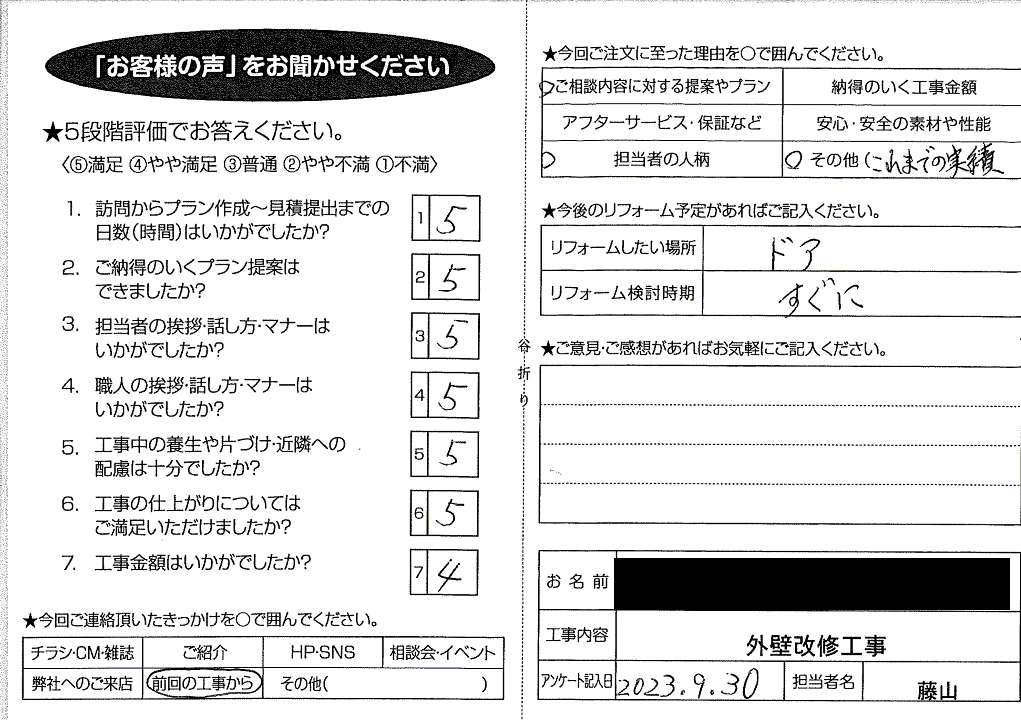 「お客様の声」をお聞かせください
★5段階評価でお答えください。
〈⑤満足 ④やや満足 ③普通 ②やや不満 ①不満〉
1. 訪問からプラン作成～見積提出までの
日数(時間)はいかがでしたか?
1 5
2. ご納得のいくプラン提案は
できましたか?
2 5
3. 担当者の挨拶・話し方・マナーは
いかがでしたか?
3 5
4. 職人の挨拶・話し方・マナーは
いかがでしたか?
4 5
5. 工事中の養生や片づけ・近隣への
配慮は十分でしたか?
5 5
6. 工事の仕上がりについては
ご満足いただけましたか?
6 5
7. 工事金額はいかがでしたか?
7 4
★今回ご連絡頂いたきっかけを○で囲んでください。
チラシ・CM・雑誌 ご紹介 HP・SNS 相談会・イベント
弊社へのご来店 前回の工事から その他( )
谷折り
★今回ご注文に至った理由を○で囲んでください。
○ご相談内容に対する提案やプラン 納得のいく工事金額
アフターサービス・保証など 安心・安全の素材や性能
○ 担当者の人柄 ○ その他(これまでの実績
★今後のリフォーム予定があればご記入ください。
リフォームしたい場所 ドア
リフォーム検討時期 すぐに
★ご意見・ご感想があればお気軽にご記入ください。
お名前
工事内容 外壁改修工事
アンケート記入日 2023.9.30 担当者名 藤山